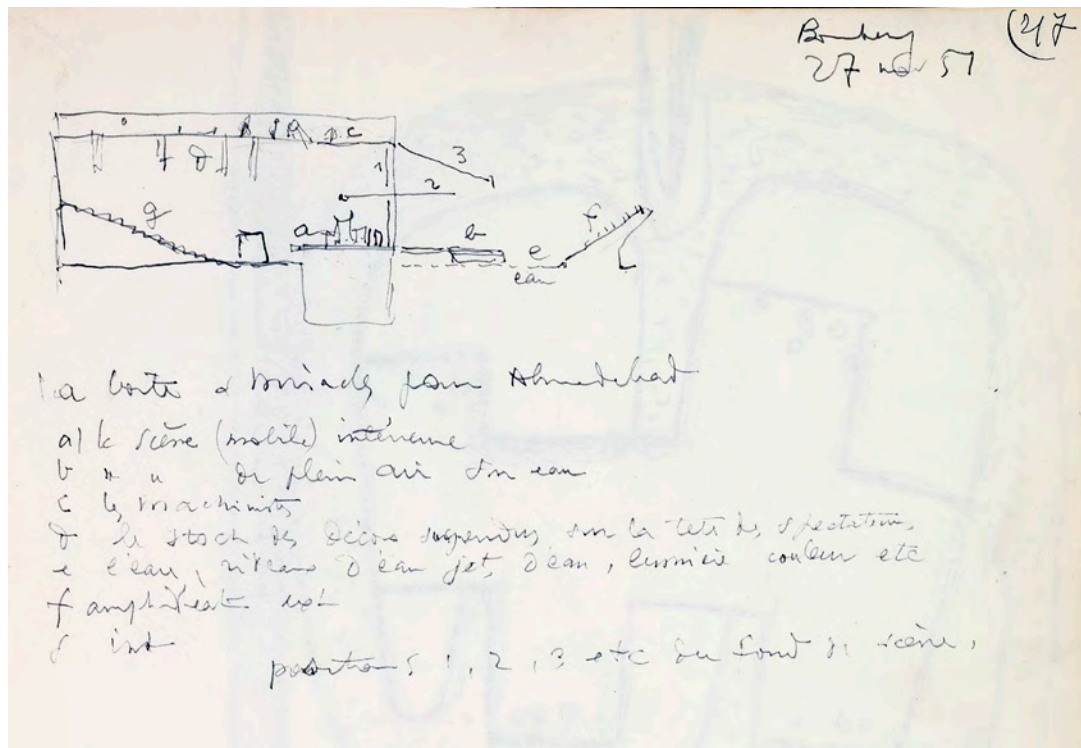 Bombay
27 nov 51
(27
3
1
2
g
d
a
b
b
c
e
f
eau
La boite à miracles pour Ahmedabad
a) la scène (mobile) intérieure
b " " de plein air sur eau
c les machinistes
d le stock des décors suspendus sur la tête des spectateurs
e l'eau, rideaux d'eau jets d'eau, lumière couleur etc
f amphithéat ext
g " int
positions 1, 2, 3 etc du fond de scène,